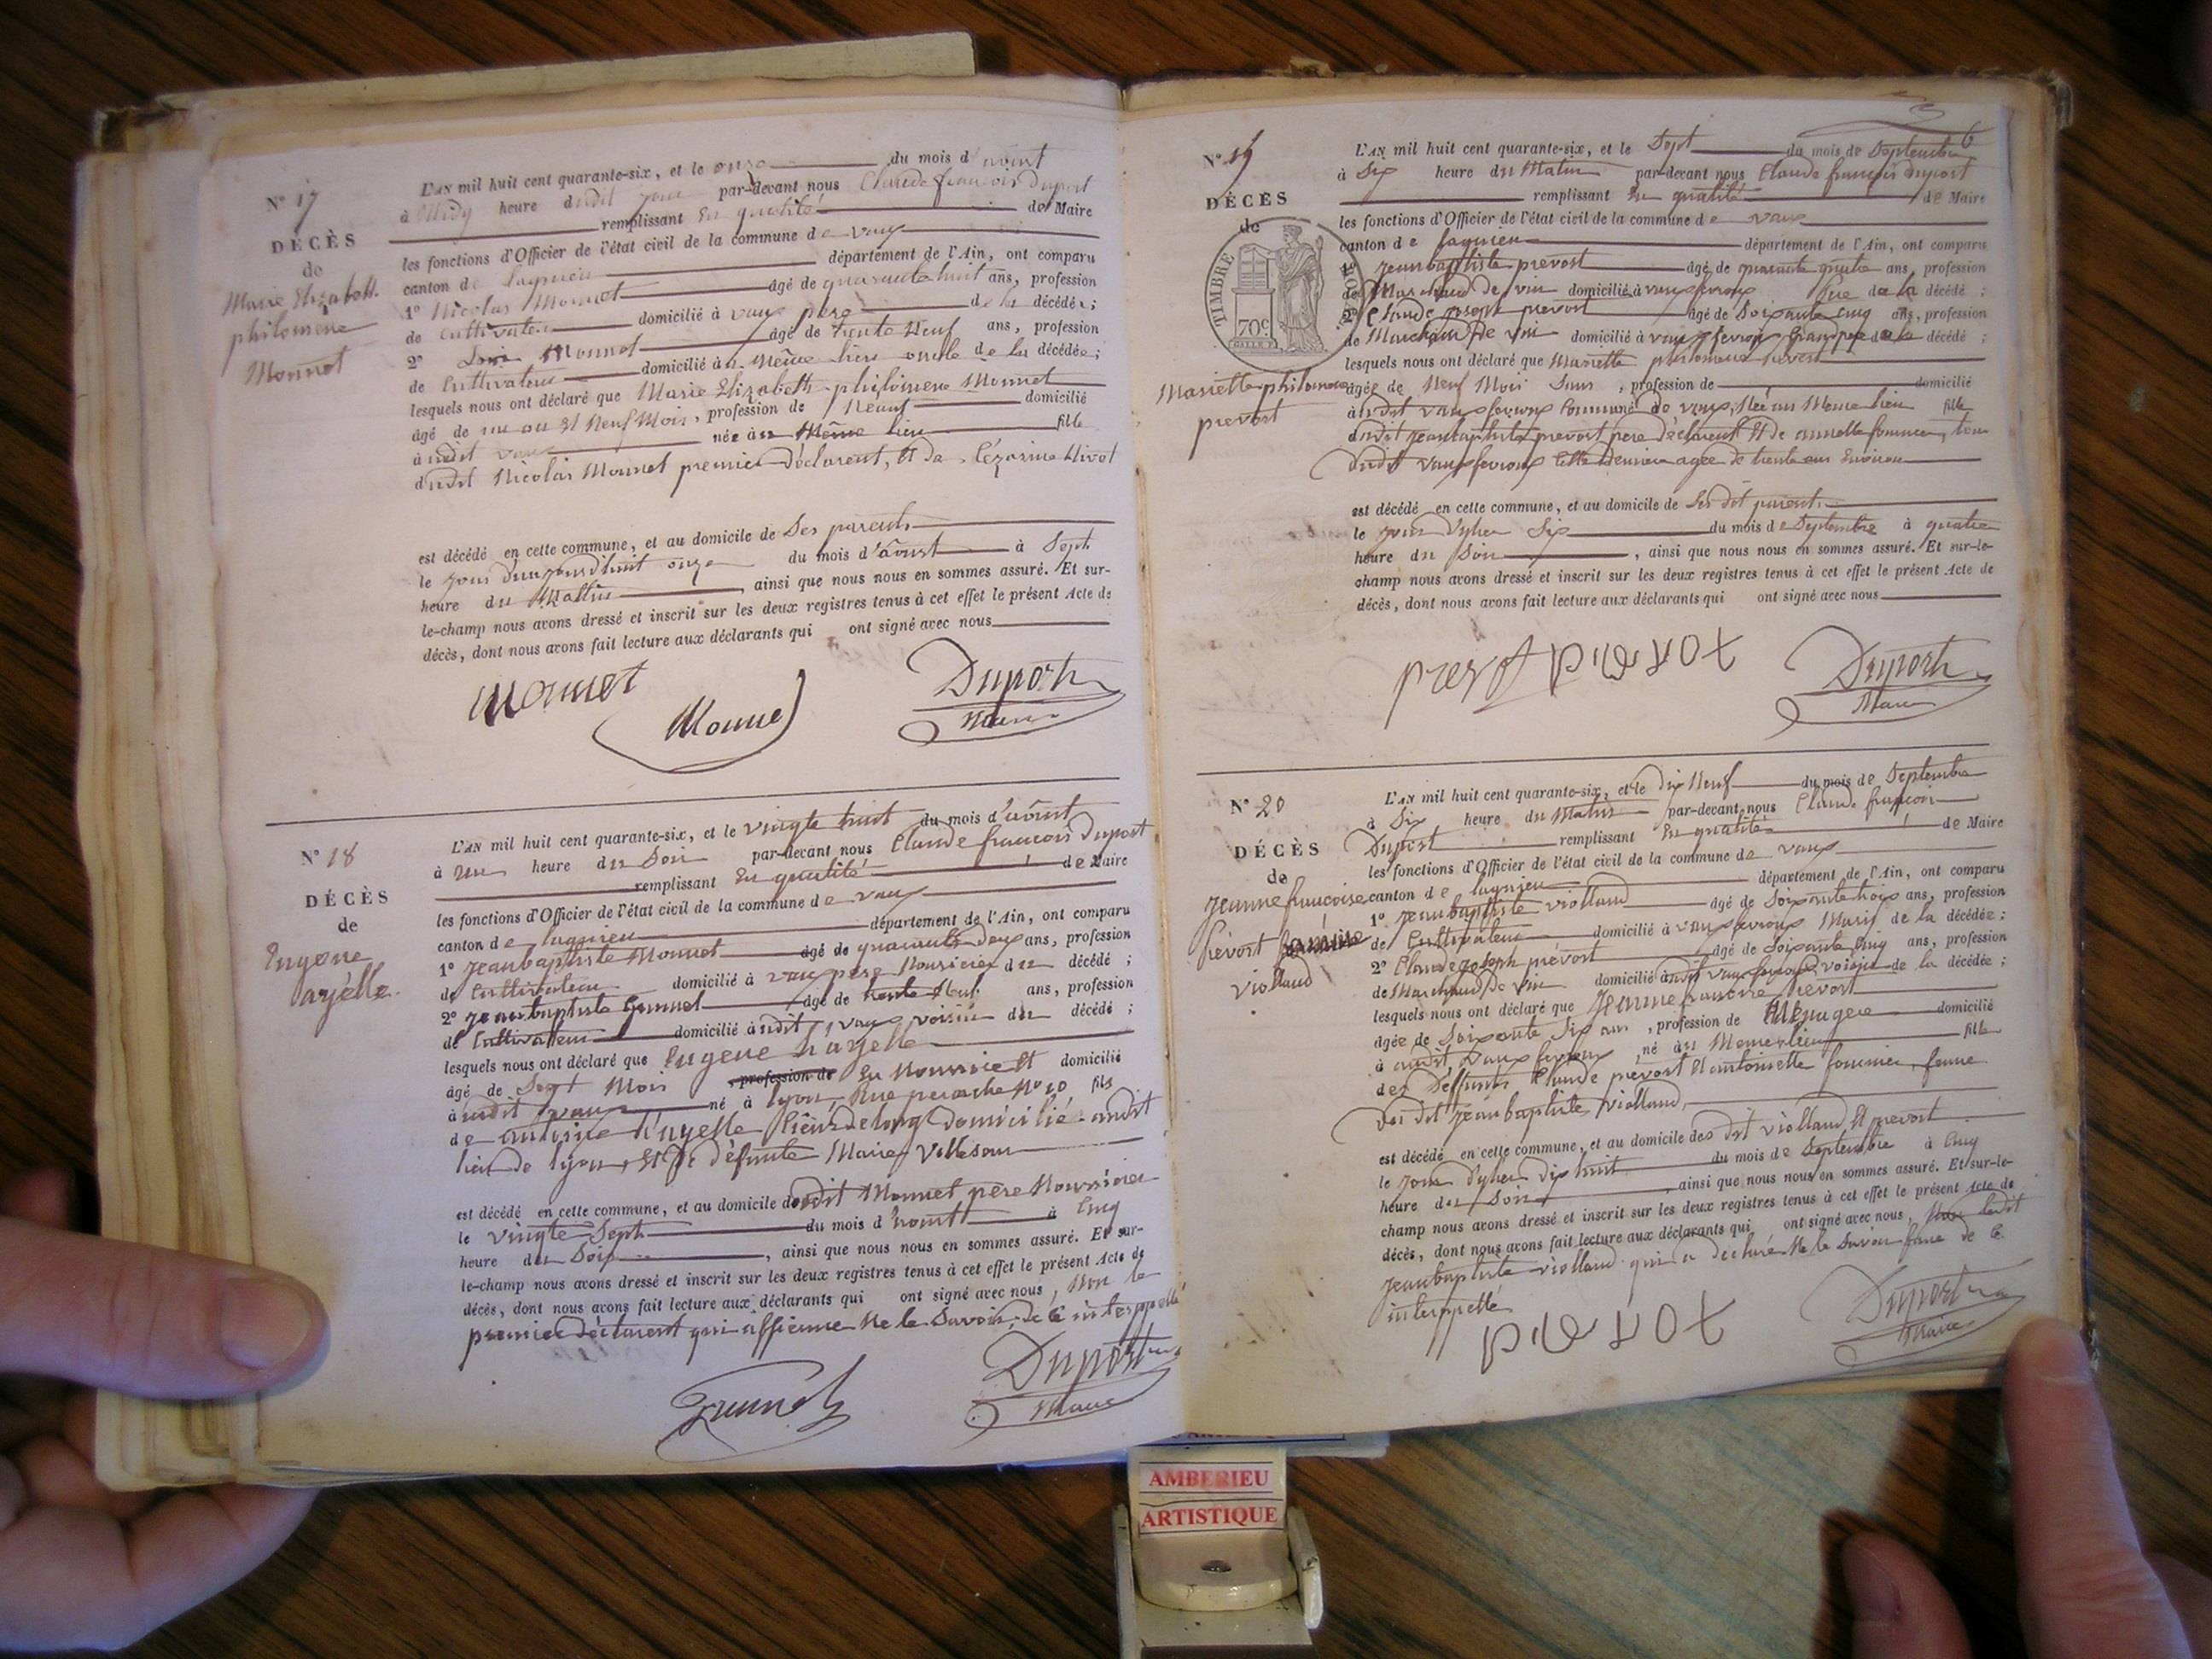 N° 17
DÉCÈS
de
Marie Elizabeth
philomène
Monnet
L'AN mil huit cent quarante-six, et le onze du mois d'août
à Midy heure dudit jour par-devant nous Claude françois Duport
remplissant En qualité de Maire
les fonctions d'Officier de l'état civil de la commune de vaux
canton de Lagnieu département de l'Ain, ont comparu
1° Nicolas Monnet âgé de quarante huit ans, profession
de Cultivateur domicilié à vaux père de la décédée;
2° Monnet âgé de trente Neuf ans, profession
de Cultivateur domicilié au Même lieu oncle de la décédée;
lesquels nous ont déclaré que Marie Elizabeth philomene Monnet
âgé de un an et Neuf Mois, profession de Néant domicilié
àudit vaux née au Même lieu fille
dudit Nicolas Monnet premier déclarent, Et de Cézarine
est décédé en cette commune, et au domicile de Ses parents
le jour d'aujourd'huit onze du mois d'août à Sept
heure du Mattin, ainsi que nous nous en sommes assuré. Et sur-
le-champ nous avons dressé et inscrit sur les deux registres tenus à cet effet le présent Acte de
décès, dont nous avons fait lecture aux déclarants qui ont signé avec nous
Monnet
Monnet
Duport
Maire
N° 18
DÉCÈS
de
Eugene
ayelle
L'AN mil huit cent quarante-six, et le vingte huit du mois d'août
à une heure du Soir par-devant nous Claude francois Duport
remplissant En qualité de Maire
les fonctions d'Officier de l'état civil de la commune de vaux
canton de Lagnieu département de l'Ain, ont comparu
1° Jeanbaptiste Monnet âgé de quarante deux ans, profession
de Cultivateur domicilié à vaux père Nourricier du décédé;
2° Jeanbaptiste âgé de trente Neuf ans, profession
de Cultivateur domicilié àudit vaux voisin du décédé;
lesquels nous ont déclaré que Eugene hayelle
âgé de Sept Mois profession de En Nourrice Et domicilié
àudit vaux né à Lyon, Rue perrache N° 10 fils
de antoine hayelle domicilié audit
lieu de Lyon, Et de défunte Marie
est décédé en cette commune, et au domicile dudit Monnet père Nourricier
le vingte Sept du mois d'août à Cinq
heure du Soir, ainsi que nous nous en sommes assuré. Et sur-
le-champ nous avons dressé et inscrit sur les deux registres tenus à cet effet le présent Acte de
décès, dont nous avons fait lecture aux déclarants qui ont signé avec nous, Non le
premier déclarent qui affirme Ne le Savoir de Ce interppellé
Duport
Maire
6
N° 19
DÉCÈS
de
TIMBRE ROYAL
70c
Mariette philomene
prevost
L'AN mil huit cent quarante-six, et le Sept du mois de Septembre
à Six heure du Matin par-devant nous Claude françois Duport
remplissant En qualité de Maire
les fonctions d'Officier de l'état civil de la commune de vaux
canton de Lagnieu département de l'Ain, ont comparu
1° Jeanbaptiste prevost âgé de quarante quatre ans, profession
de Marchand de vin domicilié à vaux fevroux Père de la décédé;
2° Claude joseph prevost âgé de Soixante cinq ans, profession
de Marchand De vin domicilié à vaux fevroux Grandpere de la décédé;
lesquels nous ont déclaré que Mariette philomene prevost
âgée de Neuf Mois, profession de domicilié
àudit vaux fevroux Commune de vaux, Née au Meme lieu fille
dudit jeanbaptiste prevost pere déclarent Et de
dudit vaux fevroux Cette Derniere agée de trente ans Environ
est décédé en cette commune, et au domicile de Ses dit parents
le jour d'hier Six du mois de Septembre à quatre
heure du Soir, ainsi que nous nous en sommes assuré. Et sur-le-
champ nous avons dressé et inscrit sur les deux registres tenus à cet effet le présent Acte de
décès, dont nous avons fait lecture aux déclarants qui ont signé avec nous
Duport
Maire
N° 20
DÉCÈS
de
Jeanne françoise
Prévost
violland
L'AN mil huit cent quarante-six, et le dix Neuf du mois de Septembre
à Six heure du Matin par-devant nous Claude françois
Duport remplissant En qualité de Maire
les fonctions d'Officier de l'état civil de la commune de vaux
canton de Lagnieu département de l'Ain, ont comparu
1° Jeanbaptiste violland âgé de Soixante trois ans, profession
de Cultivateur domicilié à vaux fevroux Mari de la décédée;
2° Claude joseph prévost âgé de Soixante Cinq ans, profession
de Marchand de vin domicilié àudit vaux fevroux voisin de la décédée;
lesquels nous ont déclaré que Jeanne francoise Prevost
âgée de Soixante Six ans, profession de Ménagere domicilié
à audit vaux fevroux, né au Meme lieu fille
des Deffunts Claude prevost Et antoinette fournier, femme
du dit Jeanbaptiste violland,
est décédé en cette commune, et au domicile des dit violland Et prevost
le jour d'hier dix huit du mois de Septembre à Cinq
heure du Soir, ainsi que nous nous en sommes assuré. Et sur-le-
champ nous avons dressé et inscrit sur les deux registres tenus à cet effet le présent Acte de
décès, dont nous avons fait lecture aux déclarants qui ont signé avec nous, Non ledit
Jeanbaptiste violland qui a déclaré Ne le Savoir faire de Ce
interppellé
Duport
Maire
AMBERIEU
ARTISTIQUE